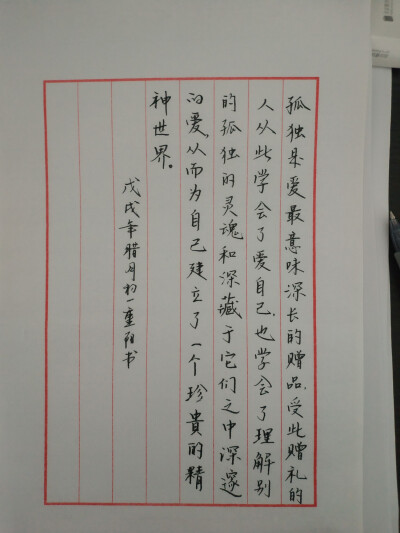 孤独是爱最意味深长的赠品,受此赠礼的
人从此学会了爱自己,也学会了理解别
的孤独的灵魂和深藏于它们之中深邃
的爱,从而为自己建立了一个珍贵的精
神世界。
戊戌年腊月初一重阳书